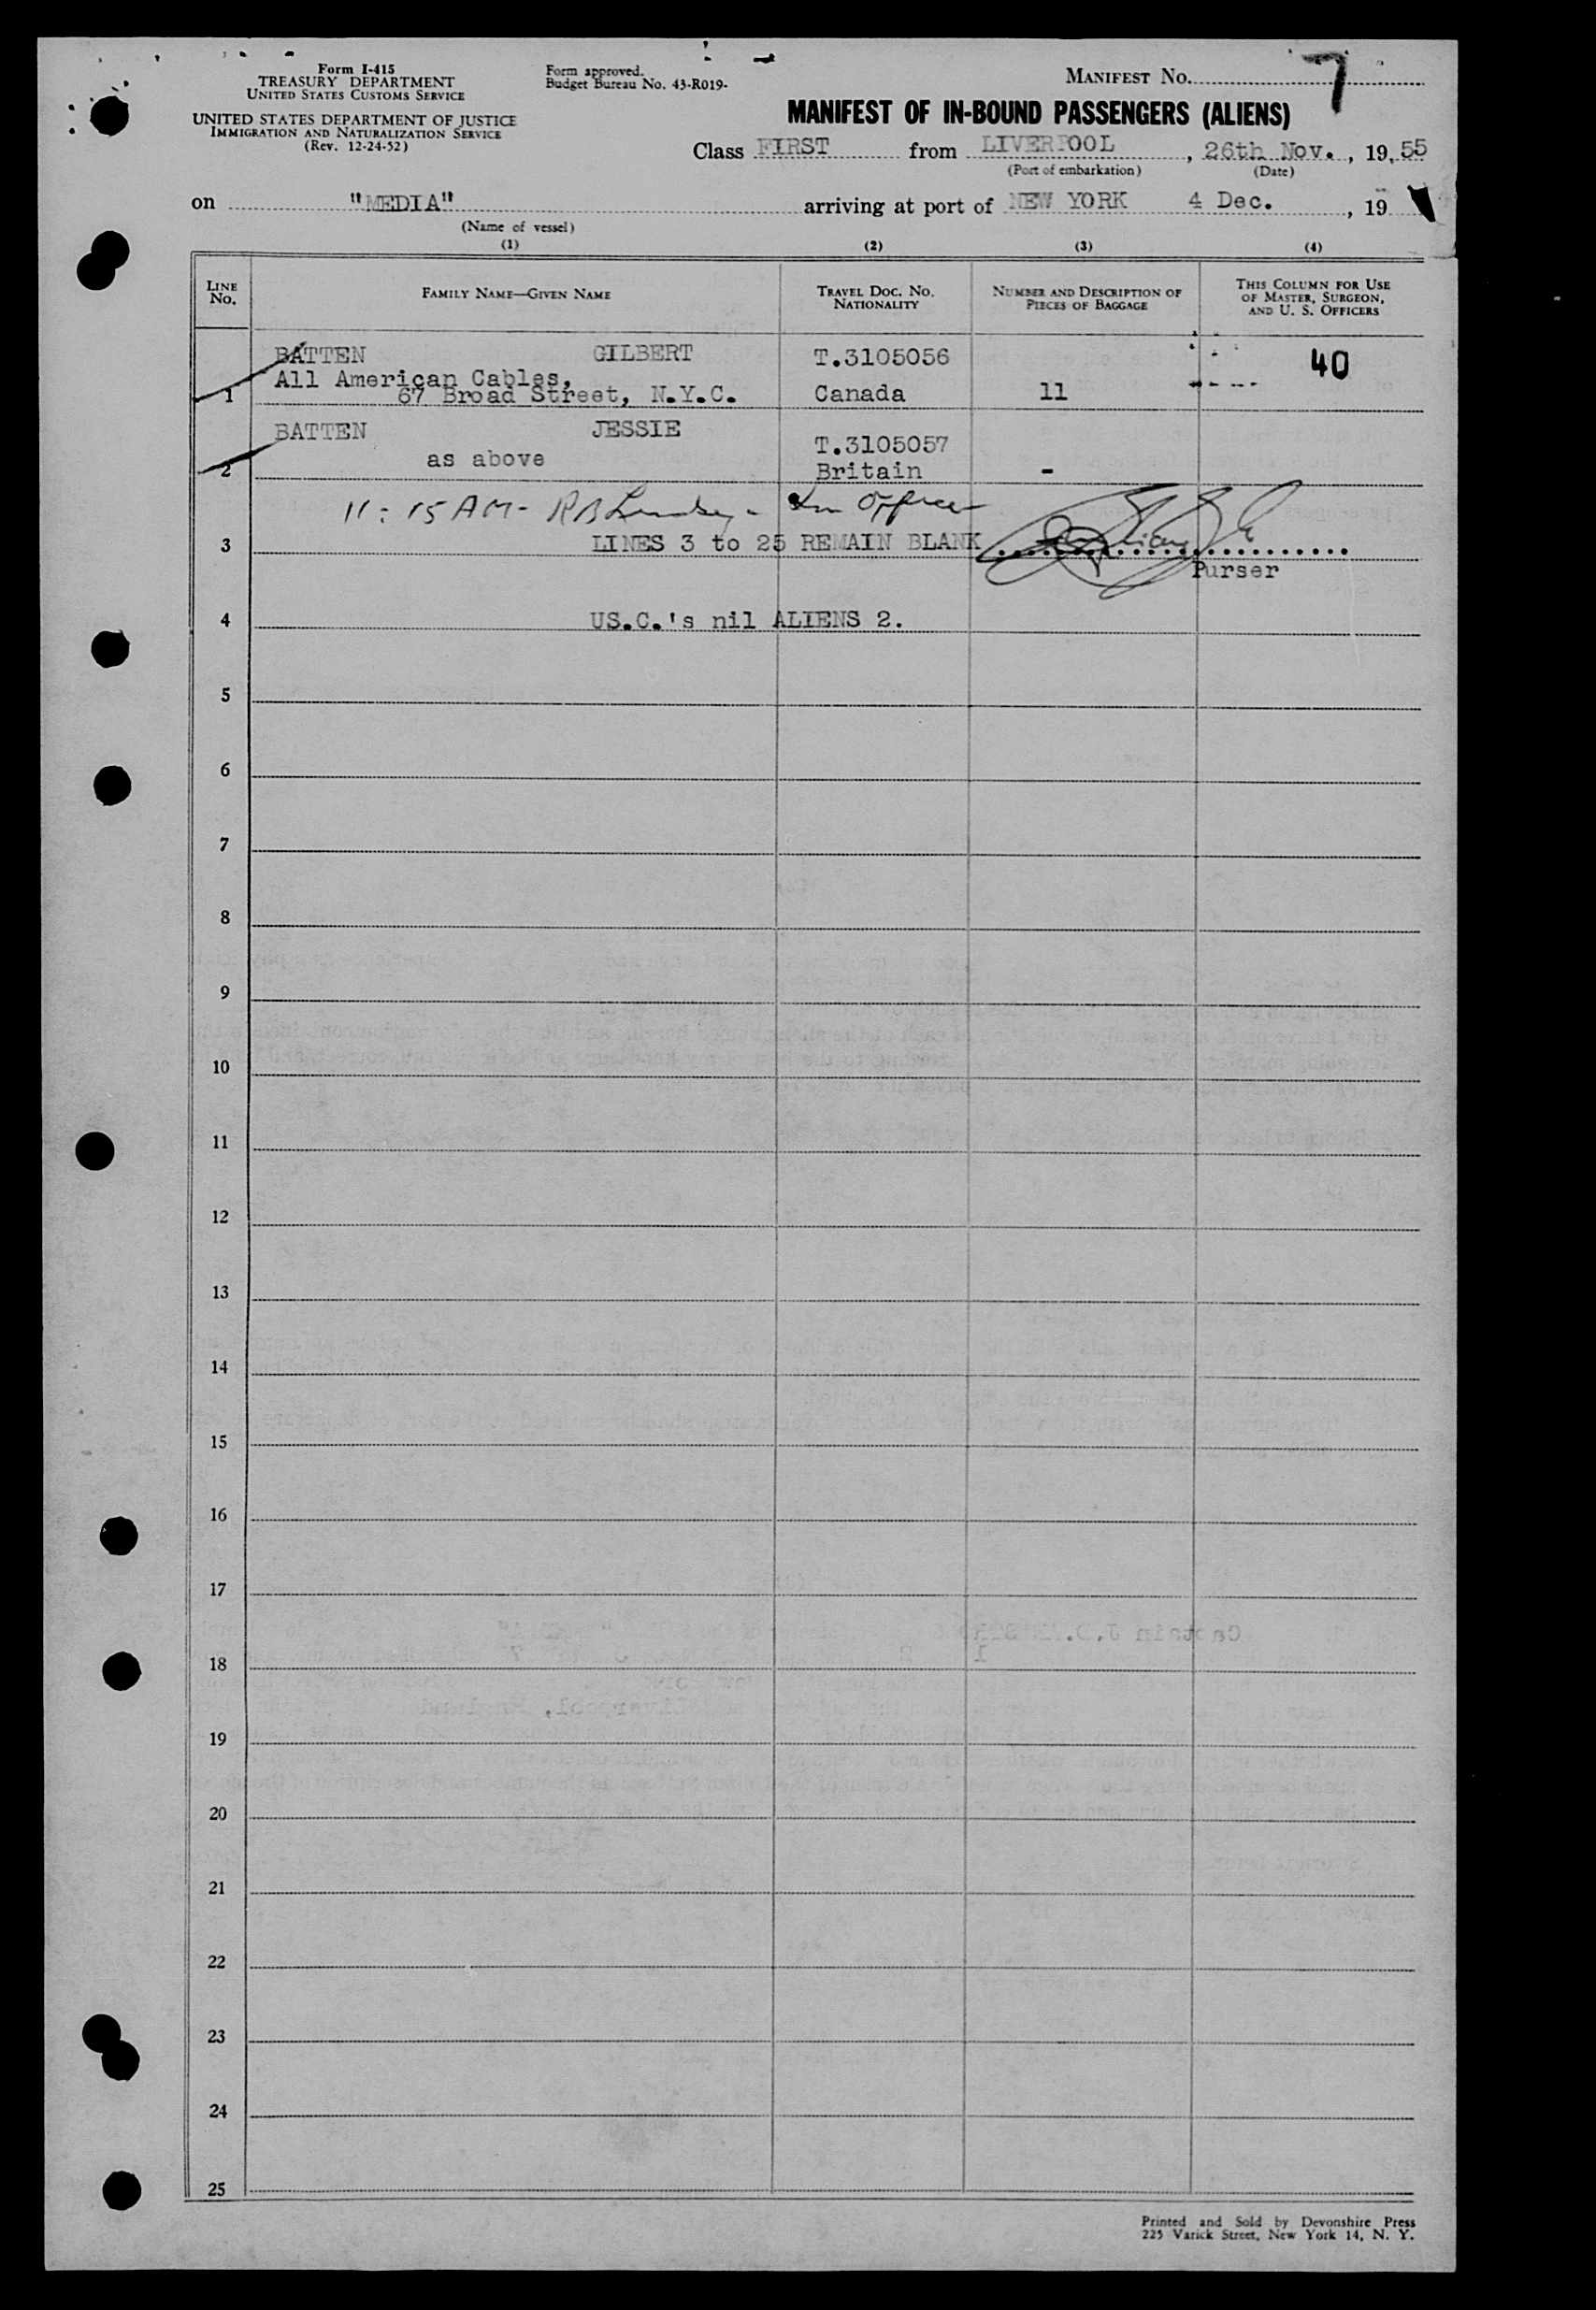 Form I-415
TREASURY DEPARTMENT
UNITED STATES CUSTOMS SERVICE
UNITED STATES DEPARTMENT OF JUSTICE
IMMIGRATION AND NATURALIZATION SERVICE
(Rev. 12-24-52)
Form approved.
Budget Bureau No. 43-R019-
MANIFEST NO. 7
MANIFEST OF IN-BOUND PASSENGERS (ALIENS)
Class FIRST from LIVERPOOL, 26th Nov., 19 55
(Port of embarkation) (Date)
on "MEDIA" arriving at port of NEW YORK 4 Dec., 19
(Name of vessel)
(1) (2) (3) (4)
LINE NO. FAMILY NAME—GIVEN NAME TRAVEL DOC. NO. NATIONALITY NUMBER AND DESCRIPTION OF PIECES OF BAGGAGE THIS COLUMN FOR USE OF MASTER, SURGEON, AND U. S. OFFICERS
BATTEN GILBERT T.3105056 40
All American Cables,
1 67 Broad Street, N.Y.C. Canada 11
BATTEN JESSIE T.3105057
as above
2 Britain -
11:15 AM - Officer
3 LINES 3 to 25 REMAIN BLANK
Purser
4 US.C.'s nil ALIENS 2.
5
6
7
8
9
10
11
12
13
14
15
16
17
18
19
20
21
22
23
24
25
Printed and Sold by Devonshire Press
225 Varick Street, New York 14, N. Y.